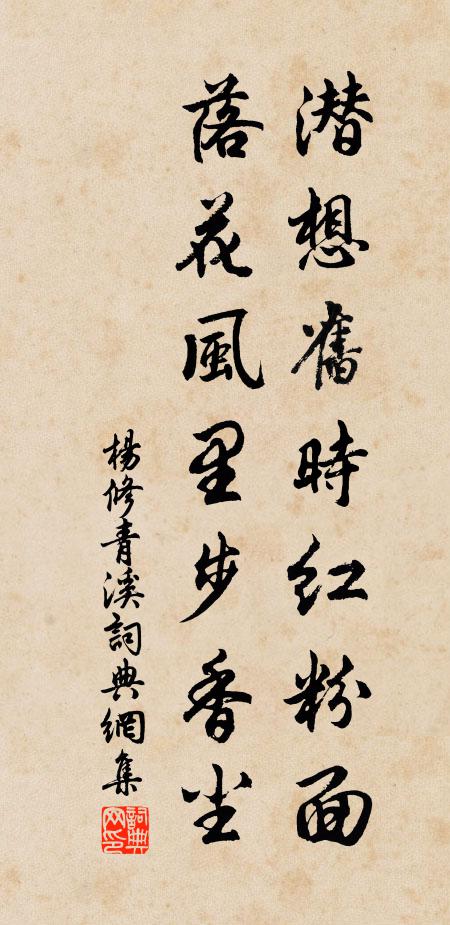 潜想舊時红粉面
落花風里步香尘
楊修青溪詞典網集
詞典网印